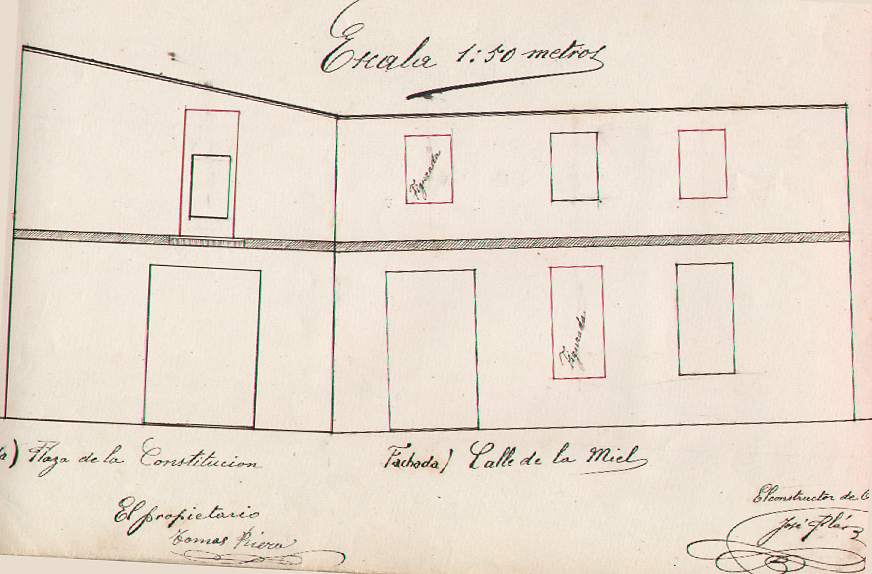 Escala 1:50 metros
Figurada
Figurada
a) Plaza de la Constitucion
Fachada) Calle de la Miel
El propietario
Tomas Riera
El constructor de
José Plá